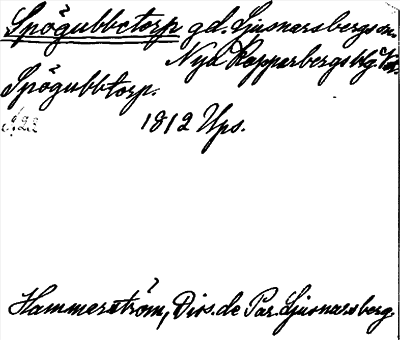 Spögubbetorp gd. Ljusnarsbergs sn.
Nya Kopparbergs blg
Spögubbtorp.
1812 Ups.
Hammerström, Diss. de Par. Ljusnarsberg.